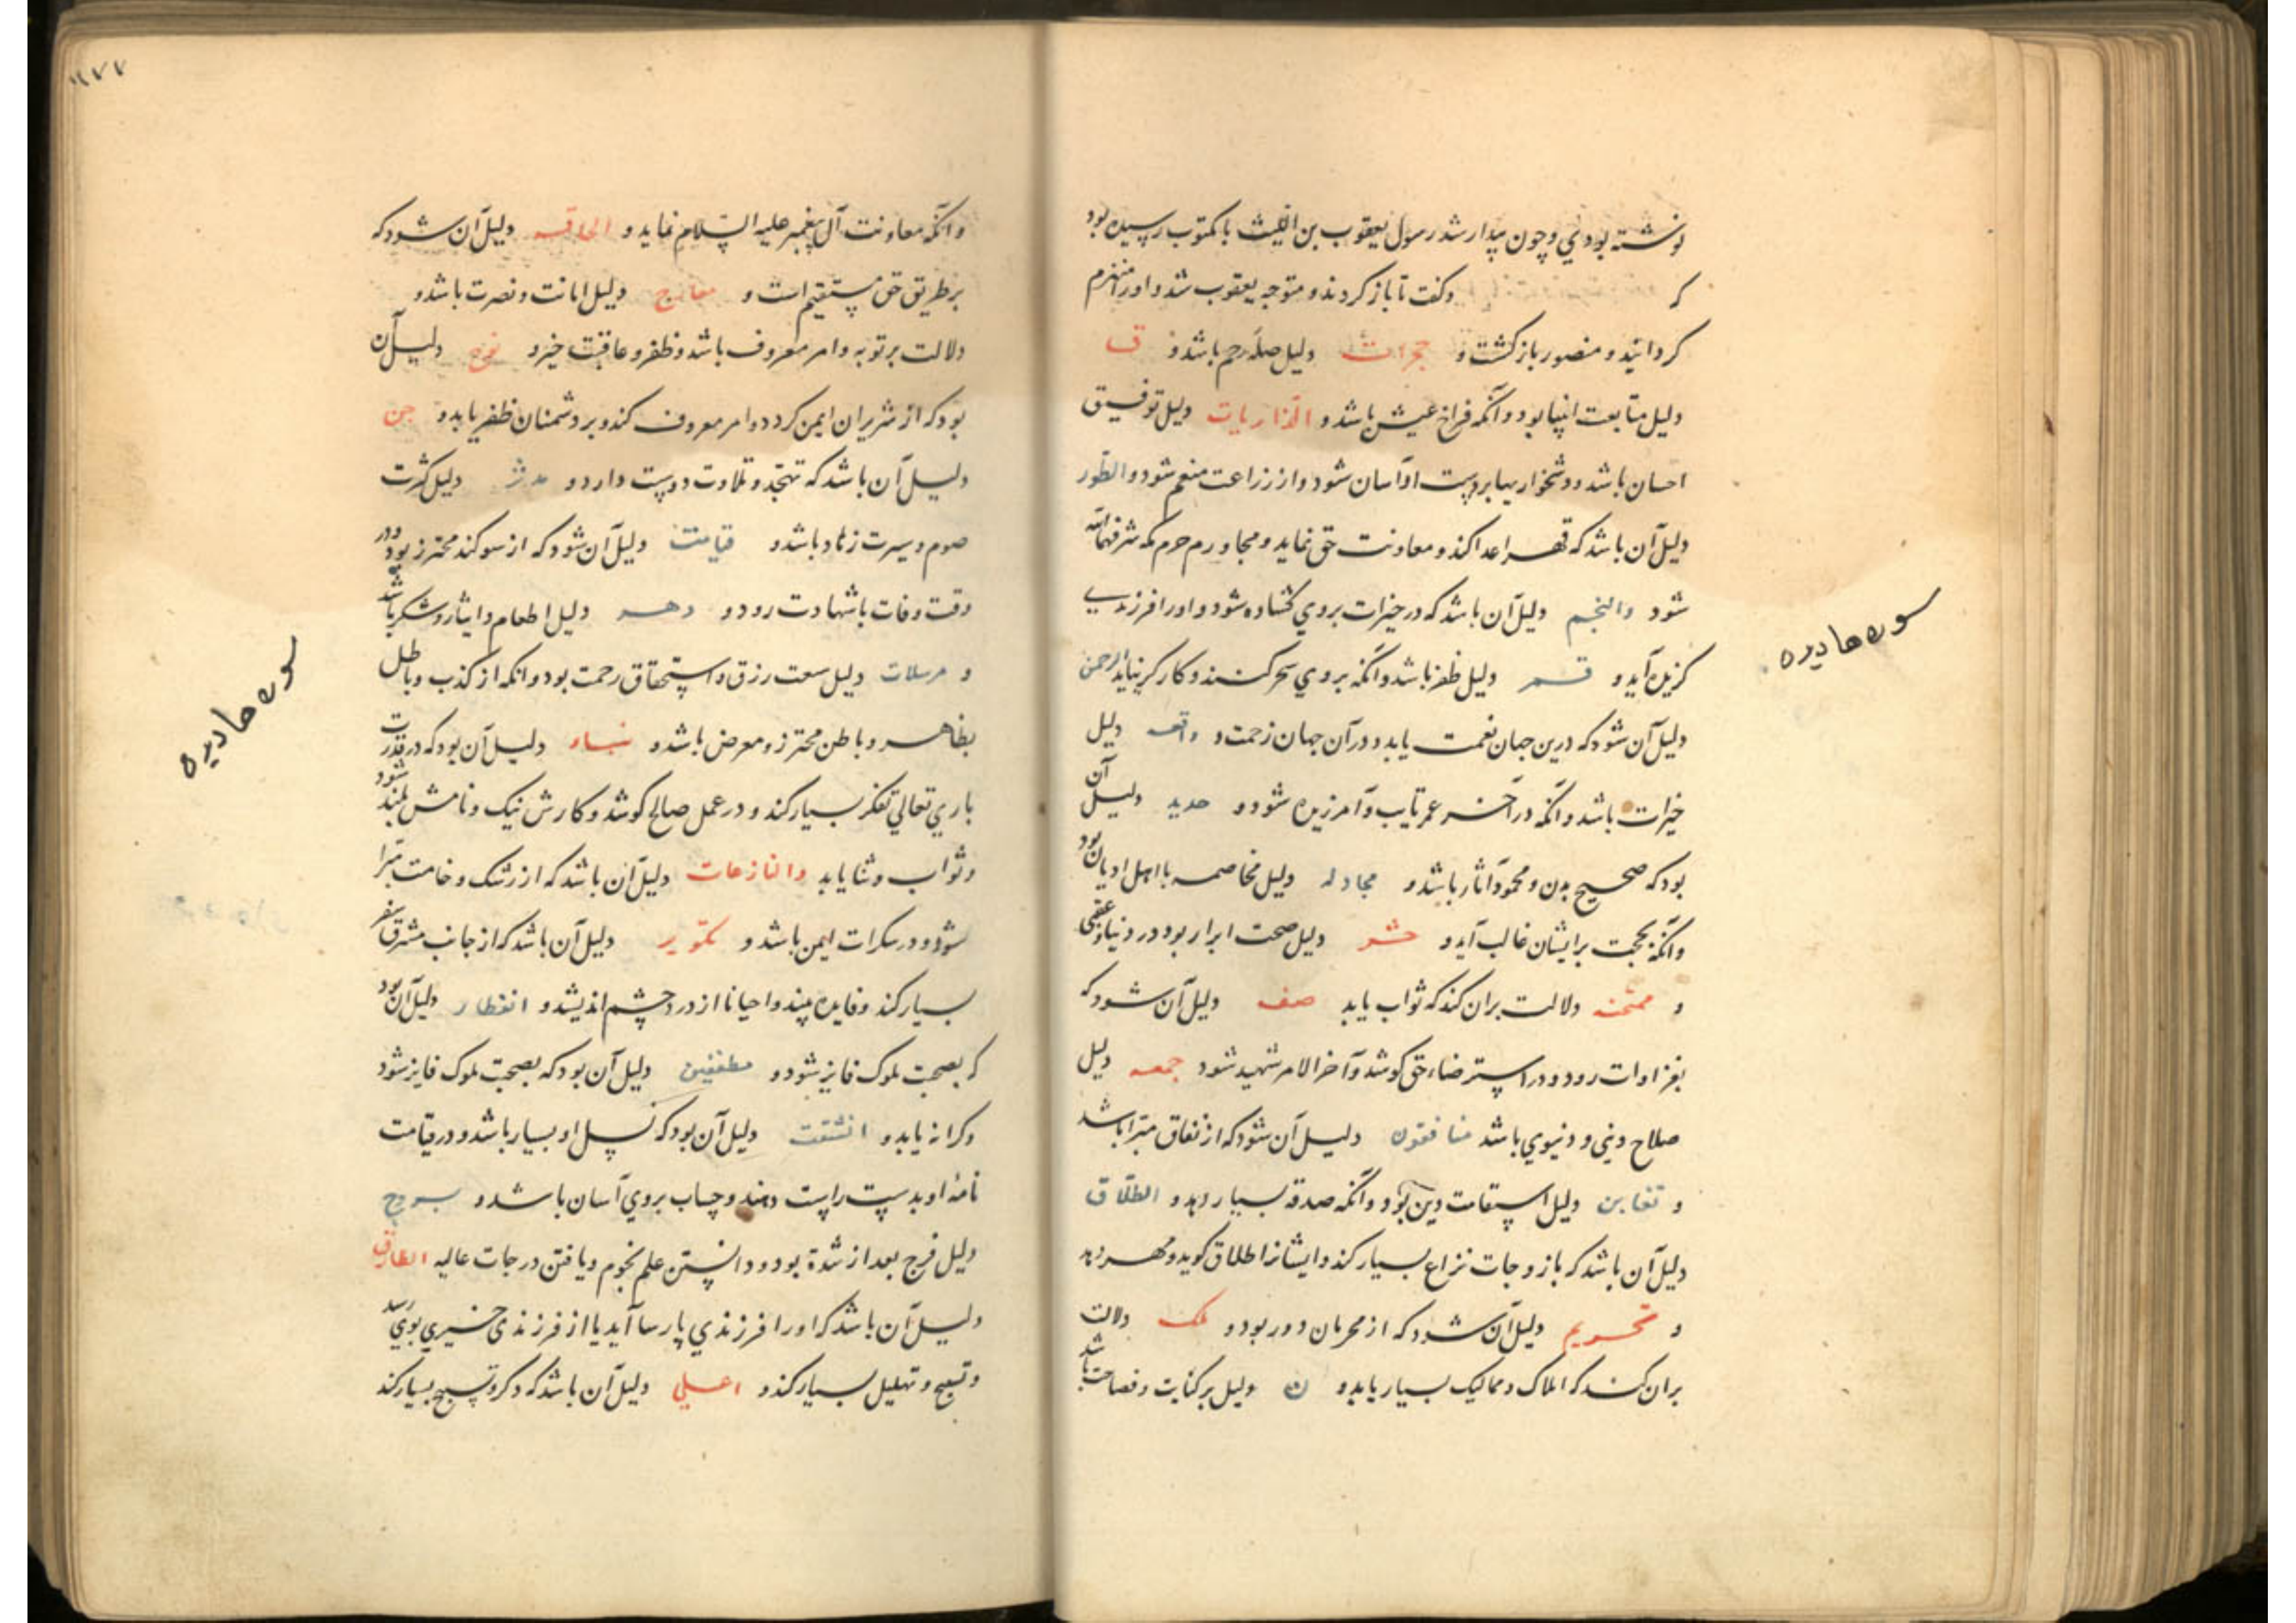 نوشته بودني و چون بیدار شد رسول یعقوب بن اللیث با مکتوب رسیده بود
که وکفت تا باز کردند و متوجه یعقوب شد و اورا منهزم
کردانید و منصور باز کشت و حجرات دلیل صله رحم باشد و ق
دلیل متابعت انبیا بود و آنکه فراخ عیش باشد و الذاریات دلیل توفیق
احسان باشد و دشخواریها بر دست او آسان شود و از زراعت منعم شود و الطور
دلیل آن باشد که قهر اعدا کند و معاونت حق نماید و مجاور حرم مکه شرفها الله
شود والنجم دلیل آن باشد که در خیرات بروي کشاده شود و اورا فرزندي
کزیده آید و قمر دلیل ظفر باشد و آنکه بروي سحر کنند و کارکر نیاید الرحمن
دلیل آن شود که درین جهان نعمت یابد و در آن جهان رحمت و واقعه دلیل
خیرات باشد و آنکه در آخر عمر تایب و آمرزیده شود و حدید دلیل آن
بود که صحیح بدن و محمود آثار باشد و مجادله دلیل مخاصمه با اهل ادیان بود
و آنکه بحجت بر ایشان غالب آید و حشر دلیل صحت ابرار بود در دنیا و عقبی
و ممتحنه دلالت بران کند که ثواب یابد صف دلیل آن شود که
بغزاوات رود و در استرضاء حق کوشد و آخر الامر شهید شود جمعه دلیل
صلاح دیني و دنیوي باشد منافقون دلیل آن شود که از نفاق مبرا باشد
و تغابن دلیل استقامت دین بود و آنکه صدقه بسیار دهد و الطلاق
دلیل آن باشد که با زوجات نزاع بسیار کند و ایشانرا طلاق کوید و مهر دهد
و تحریم دلیل آن شود که از محرمان دور بود و ملک دلالت
بران کند که املاک و ممالیک بسیار یابد و ن دلیل بر کتابت و فصاحت باشد
سوره ها دیده
۱۱۷۷
و آنکه معاونت آل پیغمبر علیه السلام نماید و الحاقه دلیل آن شود که
بر طریق حق مستقیم است و معارج دلیل امانت و نصرت باشد و
دلالت بر توبه و امر معروف باشد و ظفر و عاقبت خیر و نوح دلیل آن
بود که از شریران ایمن کردد و امر معروف کند و بر دشمنان ظفر یابد و جن
دلیل آن باشد که تهجد و تلاوت دوست دارد و مدثر دلیل کثرت
صوم و سیرت زهاد باشد و قیامت دلیل آن شود که از سوکند محترز بود و در
وقت وفات با شهادت رود و دهر دلیل اطعام و ایثار و شکر باشد
و مرسلات دلیل سعت رزق و استحقاق رحمت بود و انکه از کذب و باطل
بظاهر و باطن محترز و معرض باشد و نباء دلیل آن بود که در قدرت
باري تعالي تفکر بسیار کند و در عمل صالح کوشد و کارش نیک و نامش بلند شود
و ثواب و ثنا یابد والنازعات دلیل آن باشد که از شک و خامت مبرا
شود و در سکرات ایمن باشد و تکویر دلیل آن باشد که از جانب مشرق سفر
بسیار کند و فایده بیند و احیانا از درد چشم اندیشد و انفطار دلیل آن بود
که بصحبت ملوک فایز شود و مطففین دلیل آن بود که بصحبت ملوک فایز شود
و کرانه یابد و انشقت دلیل آن بود که نسل او بسیار باشد و در قیامت
نامهٔ او بدست راست دهند و حساب بروي آسان باشد و بروج
دلیل فرج بعد از شدة بود و دانستن علم نجوم و یافتن درجات عالیه الطارق
دلیل آن باشد که اورا فرزندي پارسا آید یا از فرزندي خیري بوي رسد
و تسبیح و تهلیل بسیار کند و اعلي دلیل آن باشد که ذکر و تسبیح بسیار کند
سوره ها دیده